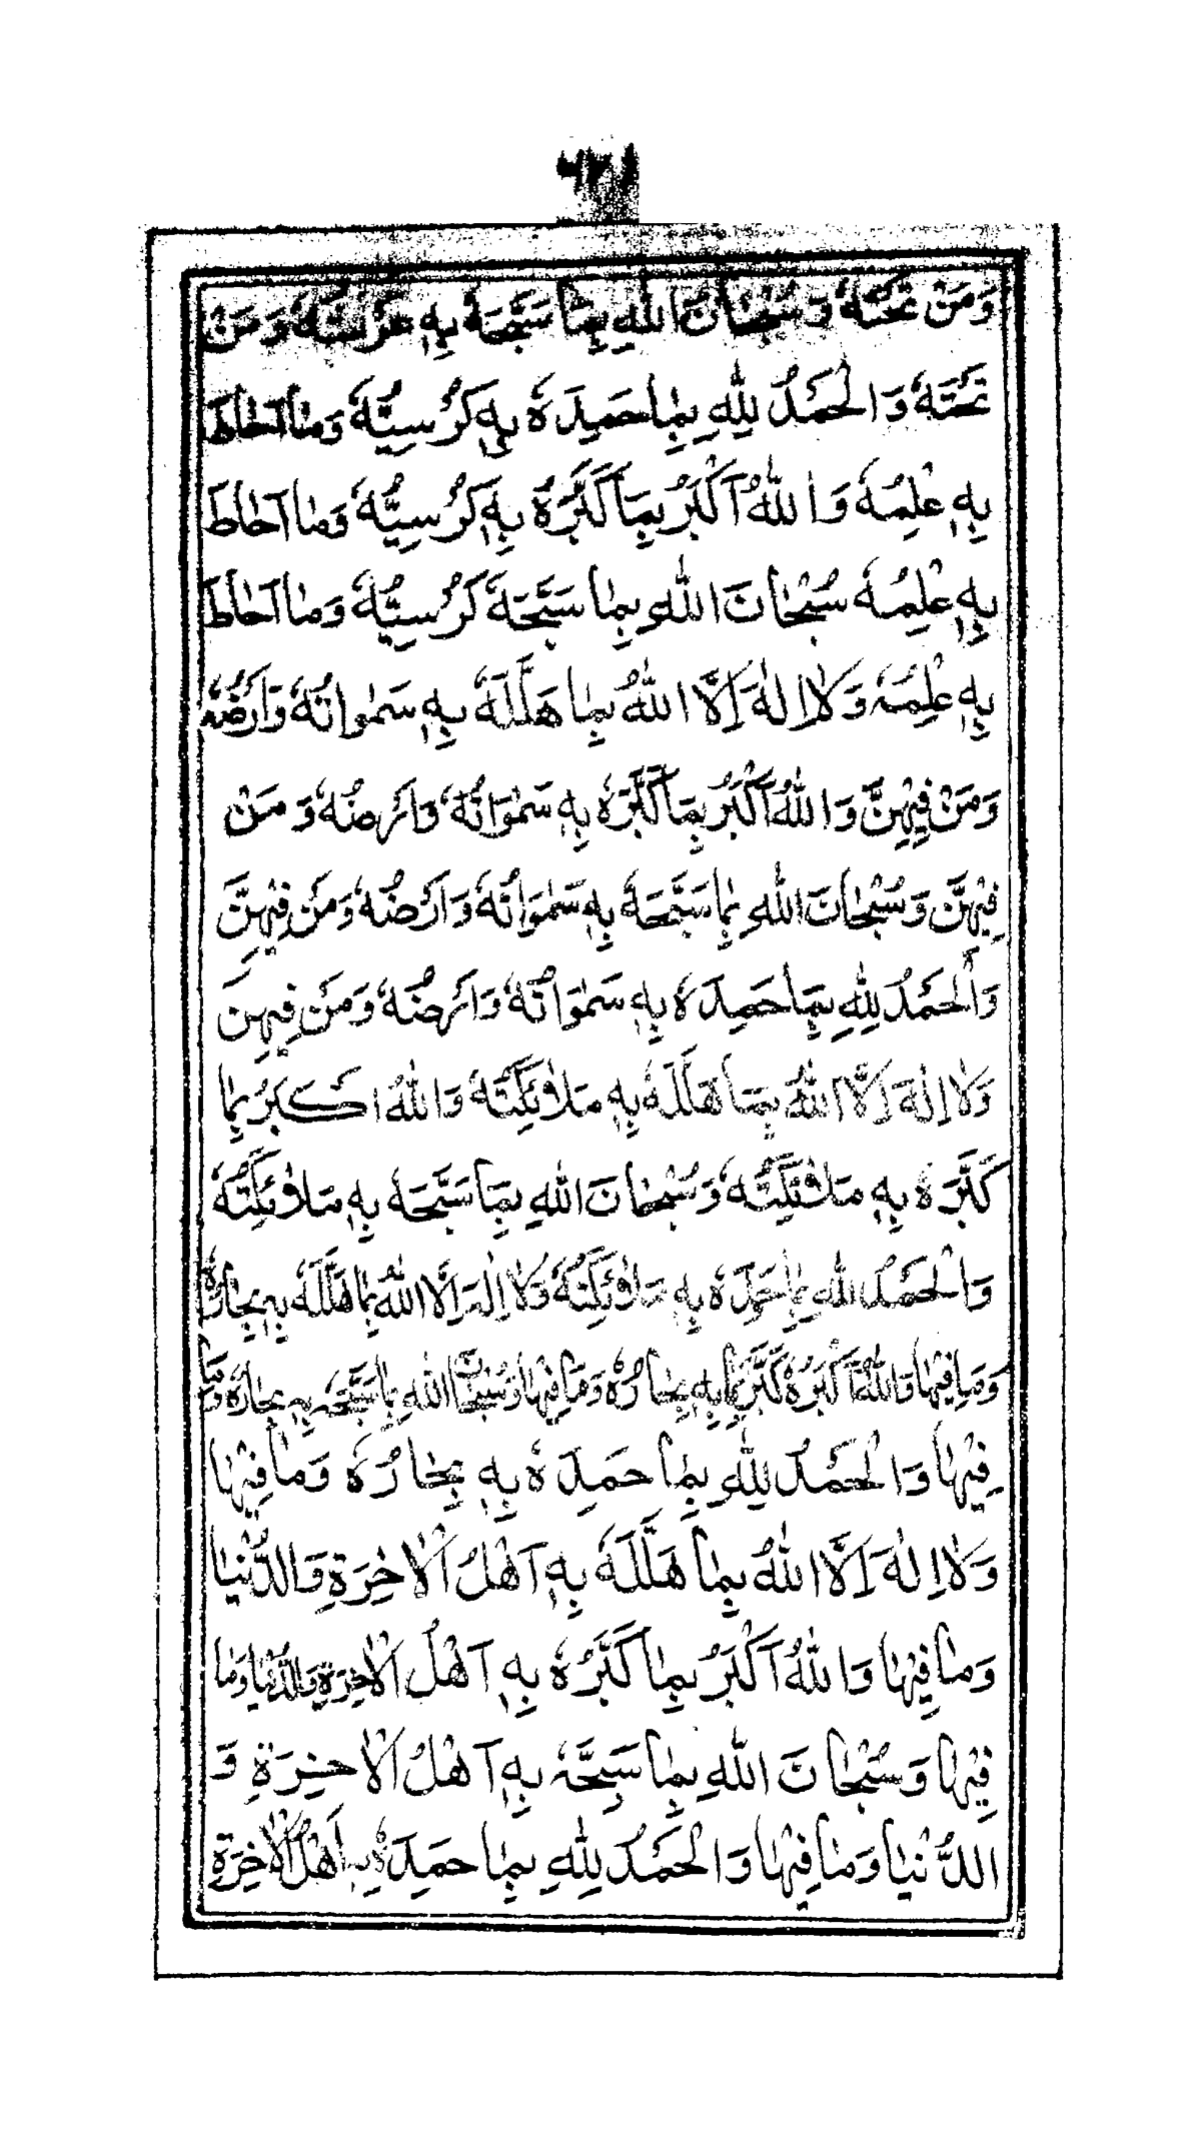 وَمَنْ تَحْتَهُ وَسُبْحَانَ اللّٰهِ بِمَا سَبَّحَهُ بِهِ عَرْشُهُ وَمَنْ
تَحْتَهُ وَالْحَمْدُ لِلّٰهِ بِمَا حَمِدَهُ بِهِ كُرْسِيُّهُ وَمَا اَحَاطَ
بِهِ عِلْمُهُ وَاللّٰهُ اَكْبَرُ بِمَا كَبَّرَهُ بِهِ كُرْسِيُّهُ وَمَا اَحَاطَ
بِهِ عِلْمُهُ سُبْحَانَ اللّٰهِ بِمَا سَبَّحَهُ كُرْسِيُّهُ وَمَا اَحَاطَ
بِهِ عِلْمُهُ وَلَا اِلٰهَ اِلَّا اللّٰهُ بِمَا هَلَّلَهُ بِهِ سَمٰوَاتُهُ وَاَرْضُهُ
وَمَنْ فِيْهِنَّ وَاللّٰهُ اَكْبَرُ بِمَا كَبَّرَهُ بِهِ سَمٰوَاتُهُ وَاَرْضُهُ وَمَنْ
فِيْهِنَّ وَسُبْحَانَ اللّٰهِ بِمَا سَبَّحَهُ بِهِ سَمٰوَاتُهُ وَاَرْضُهُ وَمَنْ فِيْهِنَّ
وَالْحَمْدُ لِلّٰهِ بِمَا حَمِدَهُ بِهِ سَمٰوَاتُهُ وَاَرْضُهُ وَمَنْ فِيهِنَ
وَلَا اِلٰهَ اِلَّا اللّٰهُ بِمَا هَلَّلَهُ بِهِ مَلَائِكَتُهُ وَاللّٰهُ اَكْبَرُ بِمَا
كَبَّرَهُ بِهِ مَلَائِكَتُهُ وَسُبْحَانَ اللّٰهِ بِمَا سَبَّحَهُ بِهِ مَلَائِكَتُهُ
وَالْحَمْدُ لِلّٰهِ بِمَا حَمِدَهُ بِهِ مَلَائِكَتُهُ وَلَا اِلٰهَ اِلَّا اللّٰهُ بِمَا هَلَّلَهُ بِهِ بِحَارُهُ
وَمَا فِيْهَا وَاللّٰهُ اَكْبَرُهُ كَبَّرَ بِمَا بِهِ بِحَارُهُ وَمَا فِيْهَا وَسُبْحَانَ اللّٰهِ بِمَا سَبَّحَهُ بِهِ بِحَارُهُ وَمَا
فِيْهَا وَالْحَمْدُ لِلّٰهِ بِمَا حَمِدَهُ بِهِ بِحَارُهُ وَمَا فِيْهَا
وَلَا اِلٰهَ اِلَّا اللّٰهُ بِمَا هَلَّلَهُ بِهِ اَهْلُ الْاٰخِرَةِ وَالدُّنْيَا
وَمَا فِيْهَا وَاللّٰهُ اَكْبَرُ بِمَا كَبَّرَهُ بِهِ اَهْلُ الْاٰخِرَةِ وَالدُّنْيَا وَمَا
فِيْهَا وَسُبْحَانَ اللّٰهِ بِمَا سَبَّحَهُ بِهِ اَهْلُ الْاٰخِرَةِ وَ
الدُّنْيَا وَمَا فِيْهَا وَالْحَمْدُ لِلّٰهِ بِمَا حَمِدَهُ بِهِ اَهْلُ الْاٰخِرَةِ